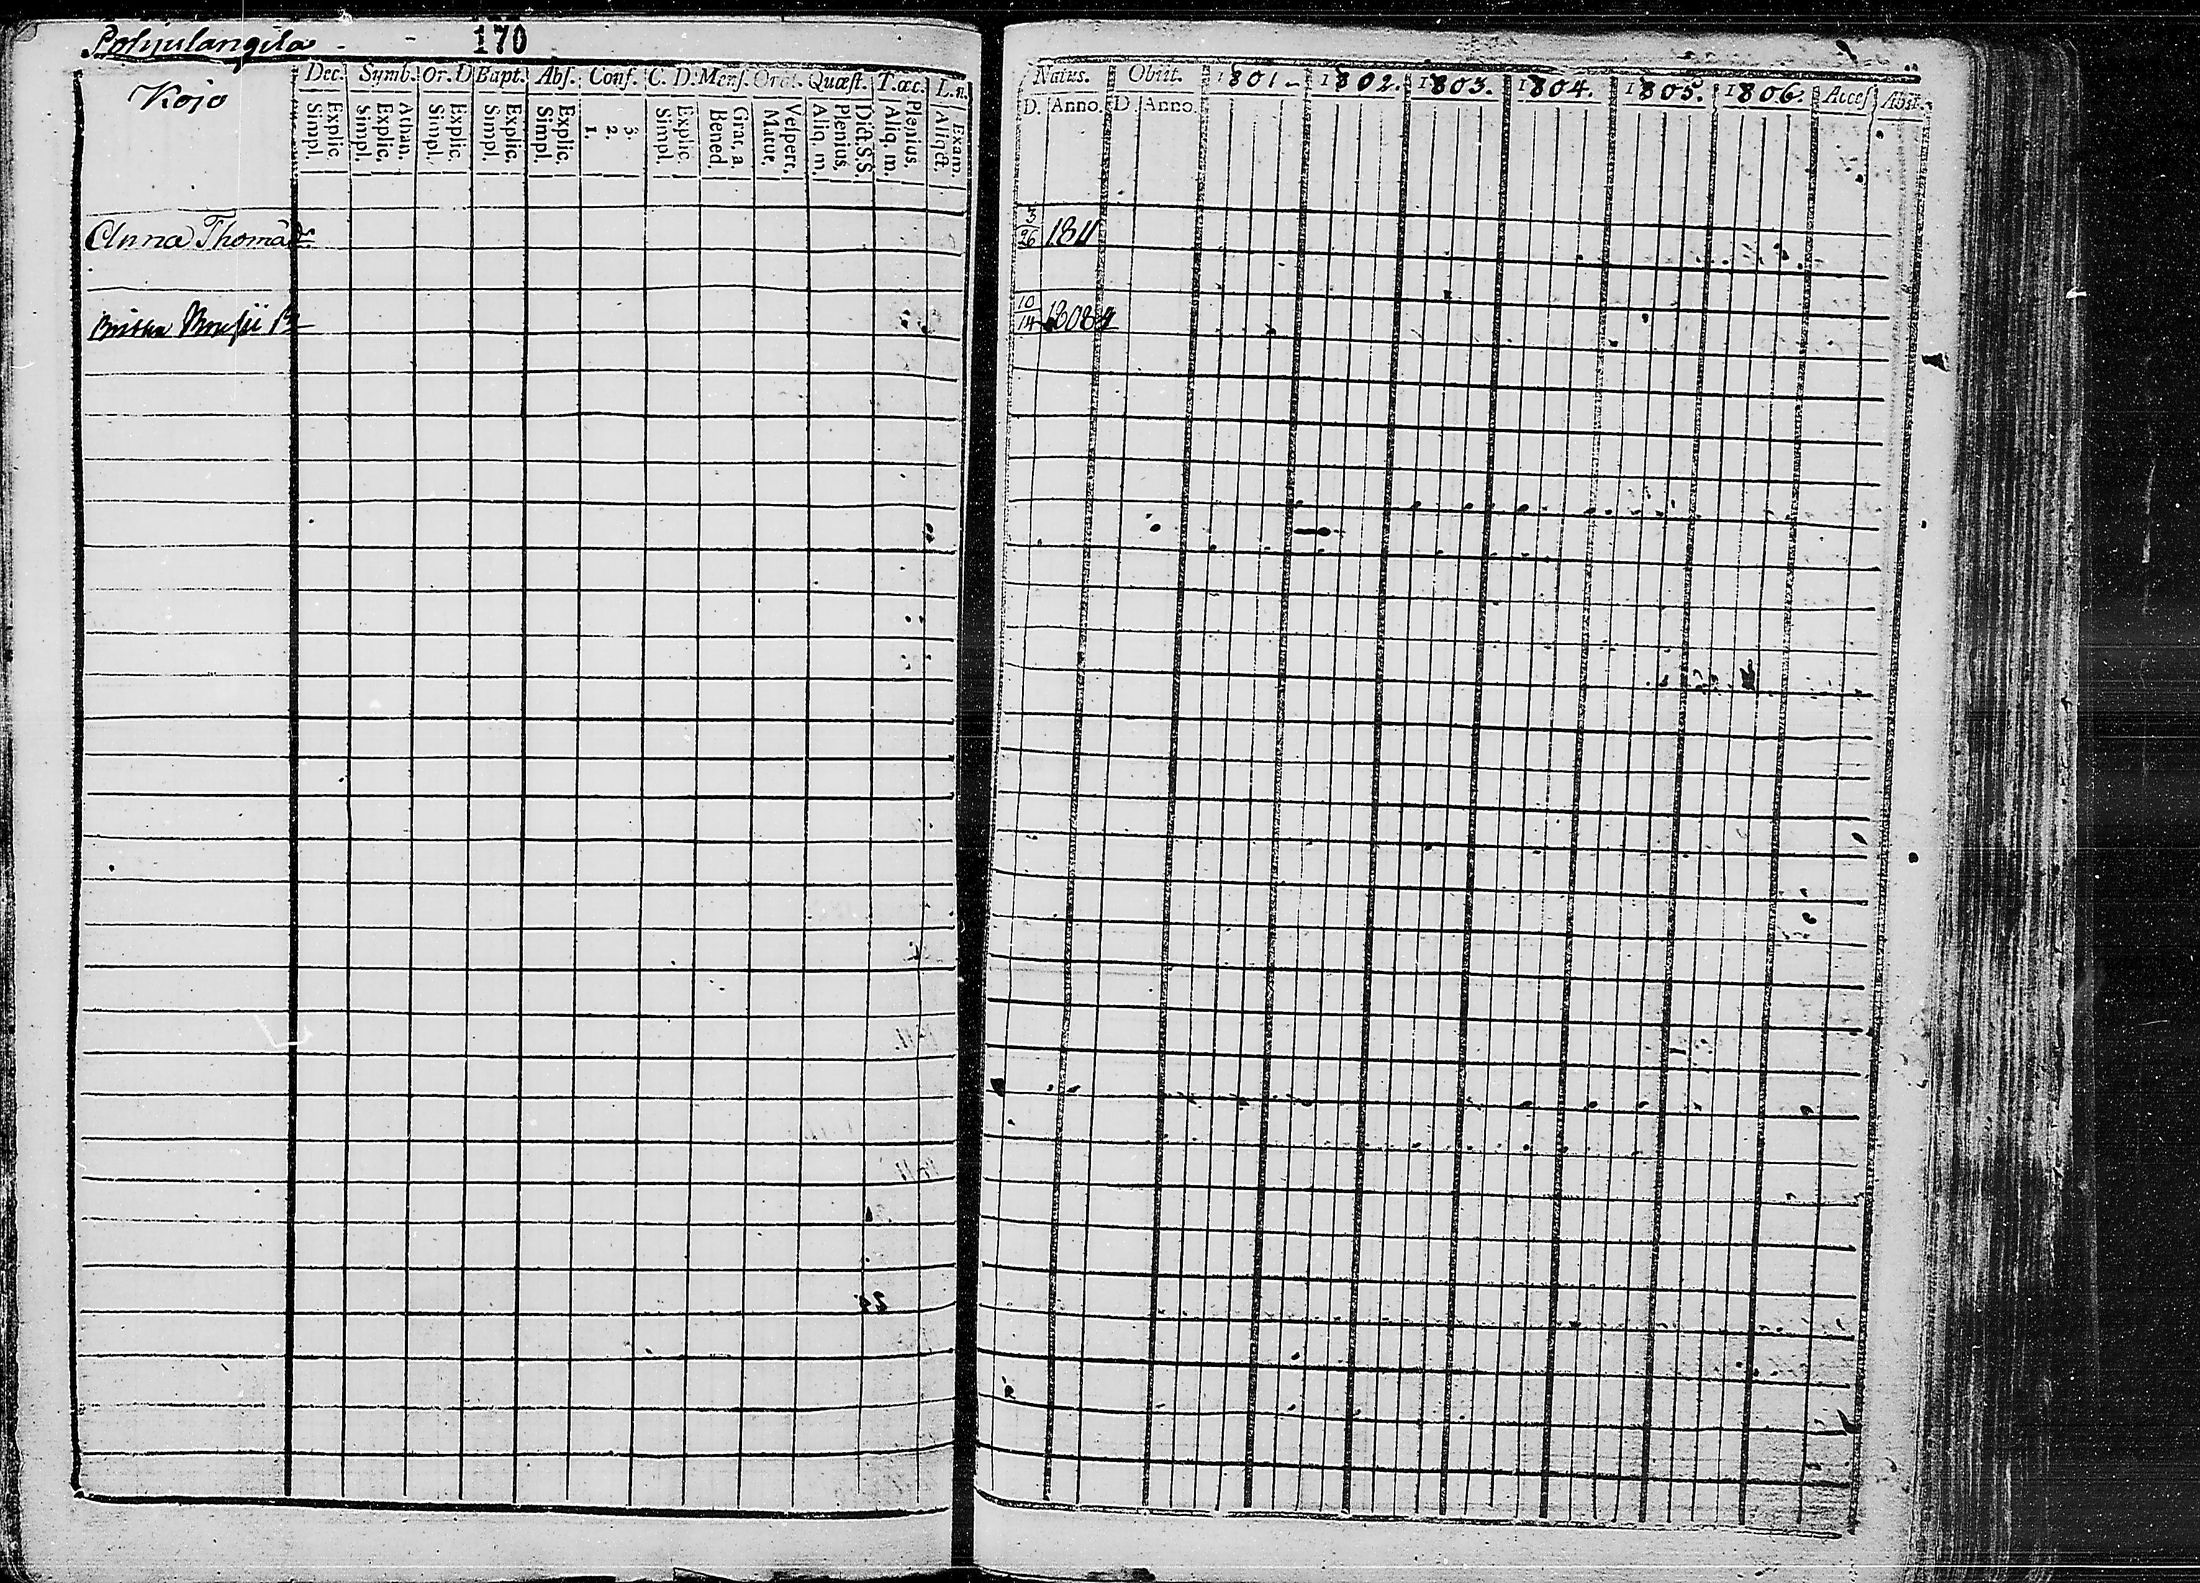 Pohjulangila 170
Kojo
Dec. Symb. Or. D Bapt. Abs. Conf. C. D. Mens. Orat. Quæst. T. œc. L. n.
Simpl. Explic. Simpl. Explic. Athan. Simpl. Explic. Simpl. Explic. Simpl. Explic. 1. 2. 3. Simpl. Explic. Bened. Grat. a. Matut. Vespert. Aliq. m. Plenius. Dict. S.S. Aliq. m. Plenius. Aliqct. Exam.
Natus. Obiit. 1801. 1802. 1803. 1804. 1805. 1806. Access. Abit.
D. Anno. D. Anno.
Anna Thomaдr 3/26 1811
10/14